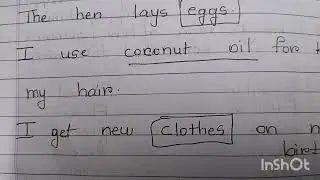 The hen lays eggs.
I use coconut oil for
my hair.
I get new clothes on
InShOt